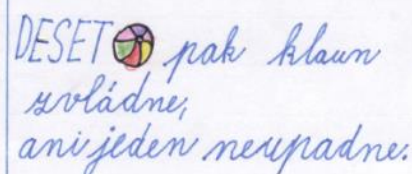 DESET pak klaun
zvládne,
ani jeden neupadne.